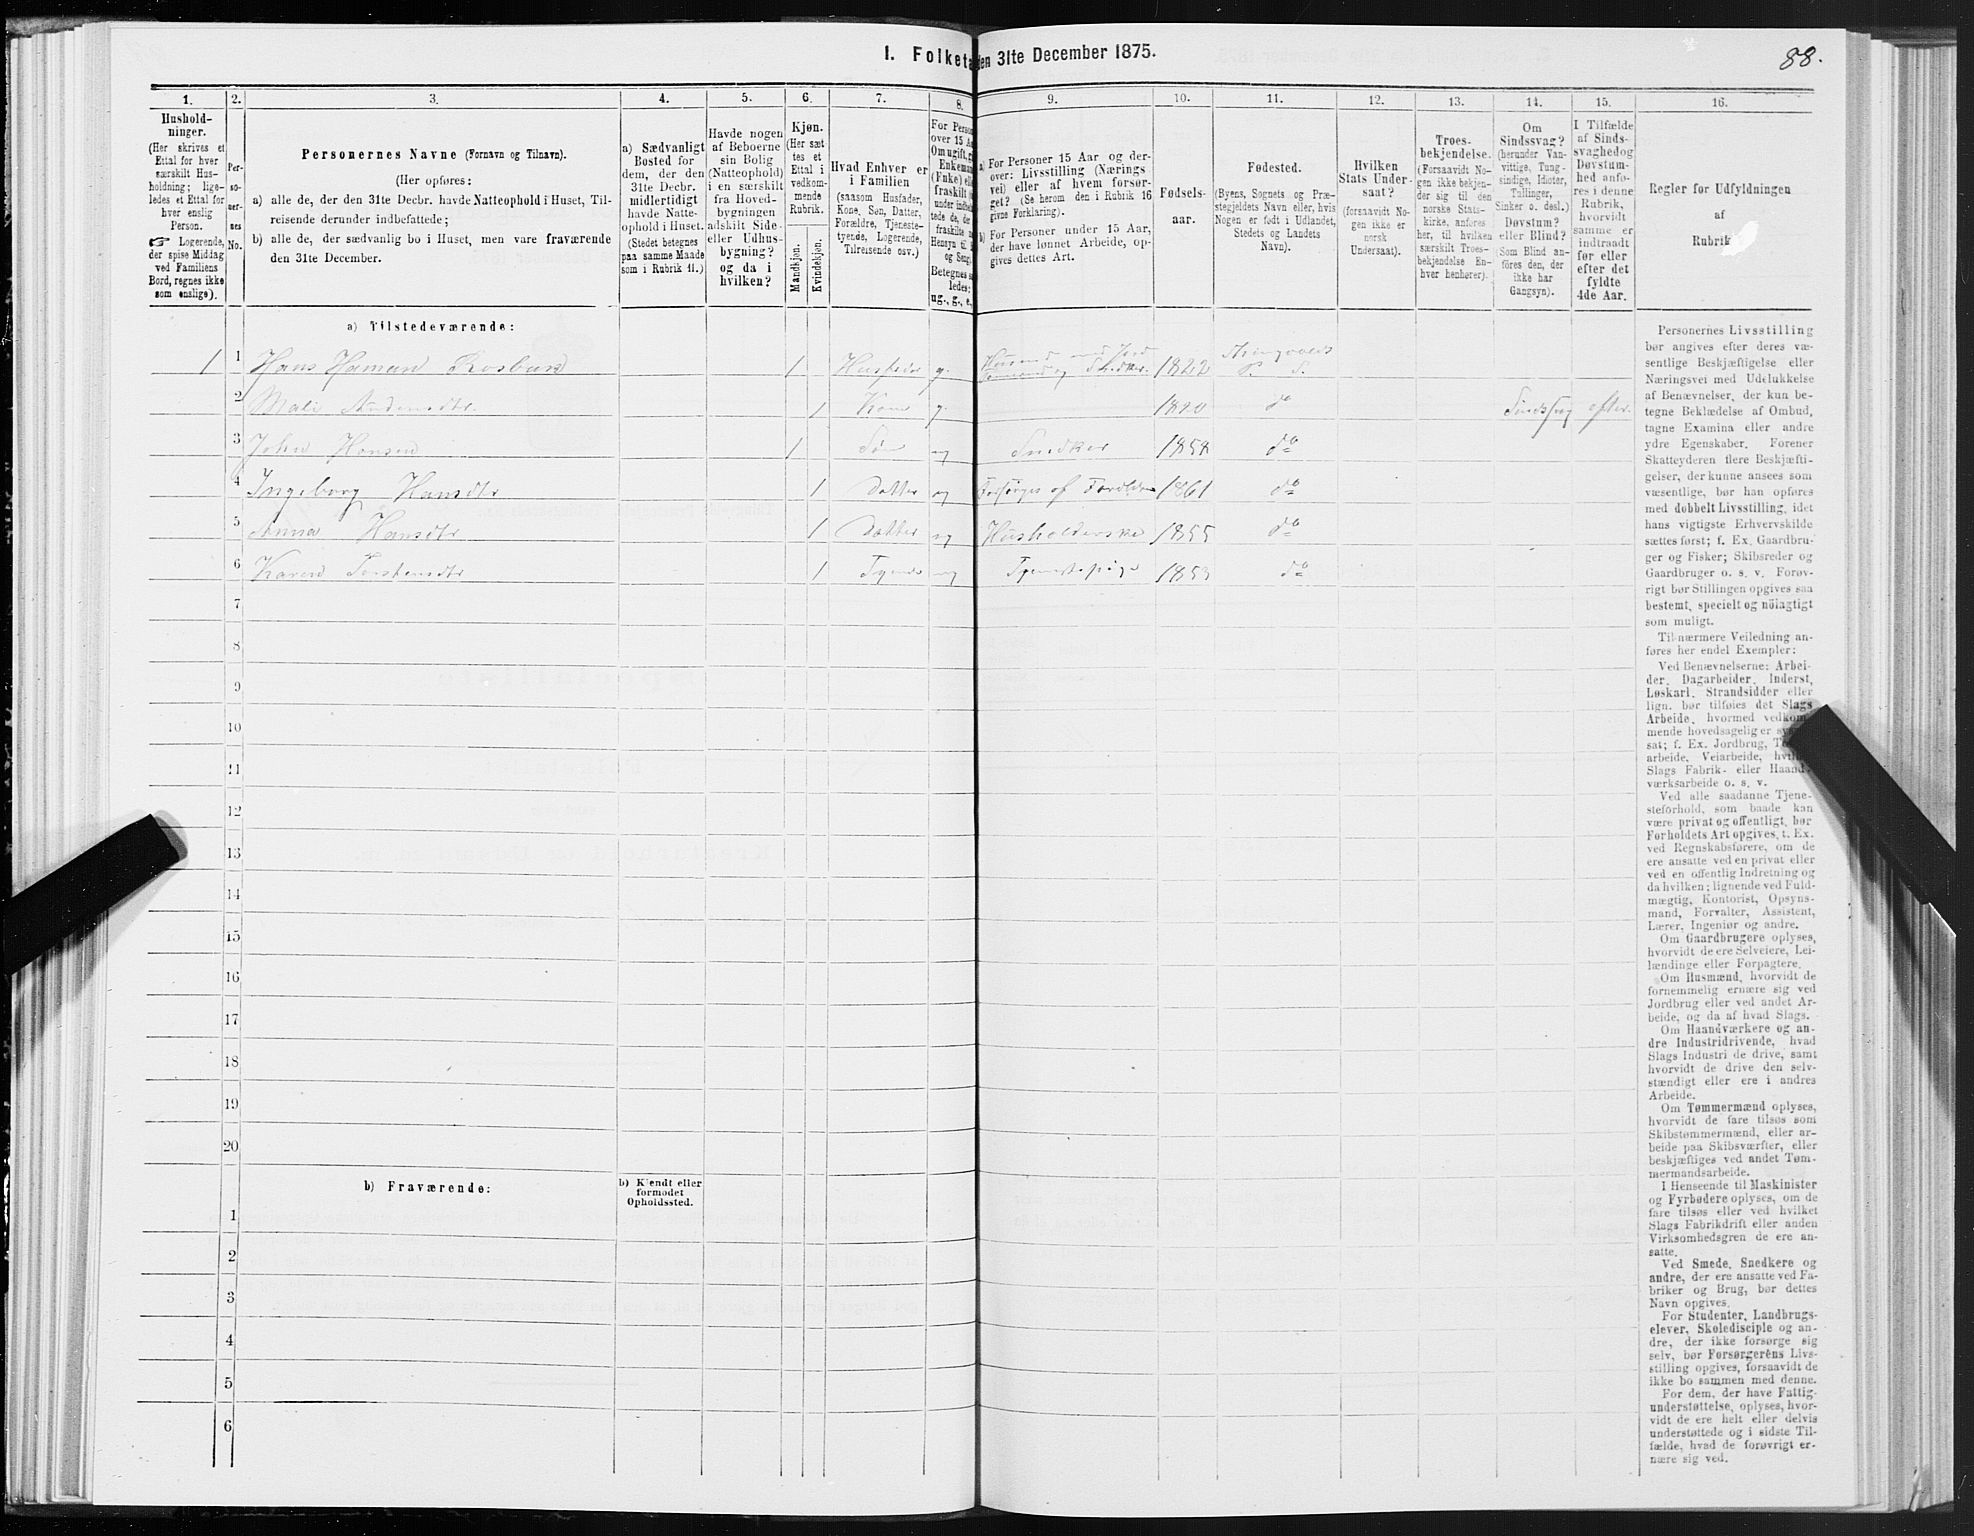 I. Folketa
den 31te December 1875.
88.
1.
2.
3.
4.
5.
6.
7.
8.
9.
10.
11.
12.
13.
14.
15.
16.
Hushold-
ninger.
(Her skrives et
Ettal for hver
særskilt Hus-
holdning; lige-
ledes et Ettal for
hver enslig
Person.
☞ Logerende,
der spise Middag
ved Familiens
Bord, regnes ikke
som enslige).
Per-
so-
ner-
nes
No.
Personernes Navne (Fornavn og Tilnavn).
(Her opføres:
a) alle de, der den 31te Decbr. havde Natteophold i Huset, Til-
reisende derunder indbefattede;
b) alle de, der sædvanlig bo i Huset, men vare fraværende
den 31te December.
a) Sædvanligt
Bosted for
dem, der den
31te Decbr.
midlertidigt
havde Natte-
ophold i Huset.
(Stedet betegnes
paa samme Maade
som i Rubrik 11.)
Havde nogen
af Beboerne
sin Bolig
(Natteophold)
i en særskilt
fra Hoved-
bygningen
adskilt Side-
eller Udhus-
bygning?
og da i
hvilken?
Kjøn.
(Her sæt
tes et
Ettal i
vedkom-
mende
Rubrik.
Mandkjøn.
Kvindekjøn.
Hvad Enhver er
i Familien
(saasom Husfader,
Kone, Søn, Datter,
Forældre, Tjeneste-
tyende, Logerende,
Tilreisende osv.)
For Person
over 15 Aa
Om ugift, g
Enkeman
(Enke) ell
fraskilt
under indbe
tede de, de
fraskilte
Hensyn til
og Seng.
Betegnes s
ledes:
ug., g., e.,
a) For Personer 15 Aar og der-
over: Livsstilling (Nærings
vei) eller af hvem forsør-
get? (Se herom den i Rubrik 16
givne Forklaring).
b) For Personer under 15 Aar,
der have lønnet Arbeide, op-
gives dettes Art.
Fødsels-
aar.
Fødested.
(Byens, Sognets og Præ-
stegjeldets Navn eller, hvis
Nogen er født i Udlandet,
Stedets og Landets
Navn).
Hvilken
Stats Under-
saat?
(forsaavidt No-
gen ikke er
norsk
Undersaat).
Troes-
bekjendelse.
(Forsaavidt No-
gen ikke bekjen-
der sig til den
norske Stats-
kirke, anføres
her, til hvilken
særskilt Troes-
bekjendelse En-
hver henhører).
Om
Sindssvag?
(herunder Van-
vittige, Tung-
sindige, Idioter,
Tullinger,
Sinker o. desl.)
Døvstum?
eller Blind?
(Som Blind an-
føres den, der
ikke har
Gangsyn).
I Tilfælde
af Sinds-
svaghed og
Døvstum-
hed anfø-
res i denne
Rubrik,
hvorvidt
samme er
indtraadt
før eller
efter det
fyldte
4de Aar.
Regler for Udfyldningen
af
Rubrik
a) Tilstedeværende:
1 1 Hans Haman 1 Husfader g. Husmand med Jord og Snedker. 1822
2 Mali Andersdtr 1 Kone g. 1820 do Sindssvag efter.
3 John Hansen 1 Søn ug Snedker 1858 do
4 Ingeborg Hansdtr 1 Datter ug Forsørges af Forældrene 1861 do
5 Anna Hansdtr 1 Datter ug Husholderske 1855 do
6 Karen Torstensdtr 1 Tyende ug Tjenestepige 1853 do
7
8
9
10
11
12
13
14
15
16
17
18
19
20
b) Fraværende:
b) Kjendt eller
formodet
Opholdssted.
1
2
3
4
5
6
Personernes Livsstilling
bør angives efter deres væ-
sentlige Beskjæftigelse eller
Næringsvei med Udelukkelse
af Benævnelser, der kun be-
tegne Beklædelse af Ombud,
tagne Examina eller andre
ydre Egenskaber. Forener
Skatteyderen flere Beskjæfti-
gelser, der kunne ansees som
væsentlige, bør han opføres
med dobbelt Livsstilling, idet
hans vigtigste Erhvervskilde
sættes først; f. Ex. Gaardbru-
ger og Fisker; Skibsreder og
Gaardbruger o. s. v. Forøv-
rigt bør Stillingen opgives saa
bestemt, specielt og nöiagtigt
som muligt.
Til nærmere Veiledning an-
føres her endel Exempler:
Ved Benævnelserne: Arbei-
der, Dagarbeider, Inderst,
Løskarl, Strandsidder eller
lign. bør tilføies det Slags
Arbeide, hvormed vedkom-
mende hovedsagelig er
sat; f. Ex. Jordbrug,
arbeide, Veiarbeide,
Slags Fabrik- eller Haand-
værksarbeide o. s. v.
Ved alle saadanne Tjene-
steforhold, som baade kan
være privat og offentligt, bør
Forholdets Art opgives, t. Ex.
ved Regnskabsførere, om de
ere ansatte ved en privat eller
ved en offentlig Indretning og
da hvilken; lignende ved Fuld-
mægtig, Kontorist, Opsyns-
mand, Forvalter, Assistent,
Lærer, Ingeniør og andre.
Om Gaardbrugere oplyses,
hvorvidt de ere Selveiere, Lei-
lændinge eller Forpagtere.
Om Husmænd, hvorvidt de
fornemmelig ernære sig ved
Jordbrug eller ved andet Ar-
beide, og da af hvad Slags.
Om Haandværkere og an-
dre Industridrivende, hvad
Slags Industri de drive, samt
hvorvidt de drive den selv-
stændigt eller ere i andres
Arbeide.
Om Tømmermænd oplyses,
hvorvidt de fare tilsøs som
Skibstømmermænd, eller ar-
beide paa Skibsværfter, eller
beskjæftiges ved andet Tøm-
mermandsarbeide.
I Henseende til Maskinister
og Fyrbødere oplyses, om de
fare tilsøs eller ved hvilket
Slags Fabrikdrift eller anden
Virksomhedsgren de ere an-
satte.
Ved Smede, Snedkere og
andre, der ere ansatte ved Fa-
briker og Brug, bør dettes
Navn opgives.
For Studenter, Landbrugs-
elever, Skoledisciple og an-
dre, der ikke forsørge sig
selv, bør Forsørgerens Livs-
stilling opgives, forsaavidt de
ikke bo sammen med denne.
For dem, der have Fattig-
understøttelse, oplyses, hvor-
vidt de ere helt eller delvis
understøttede og i sidste Til-
fælde, hvad de forøvrigt er-
nære sig ved.